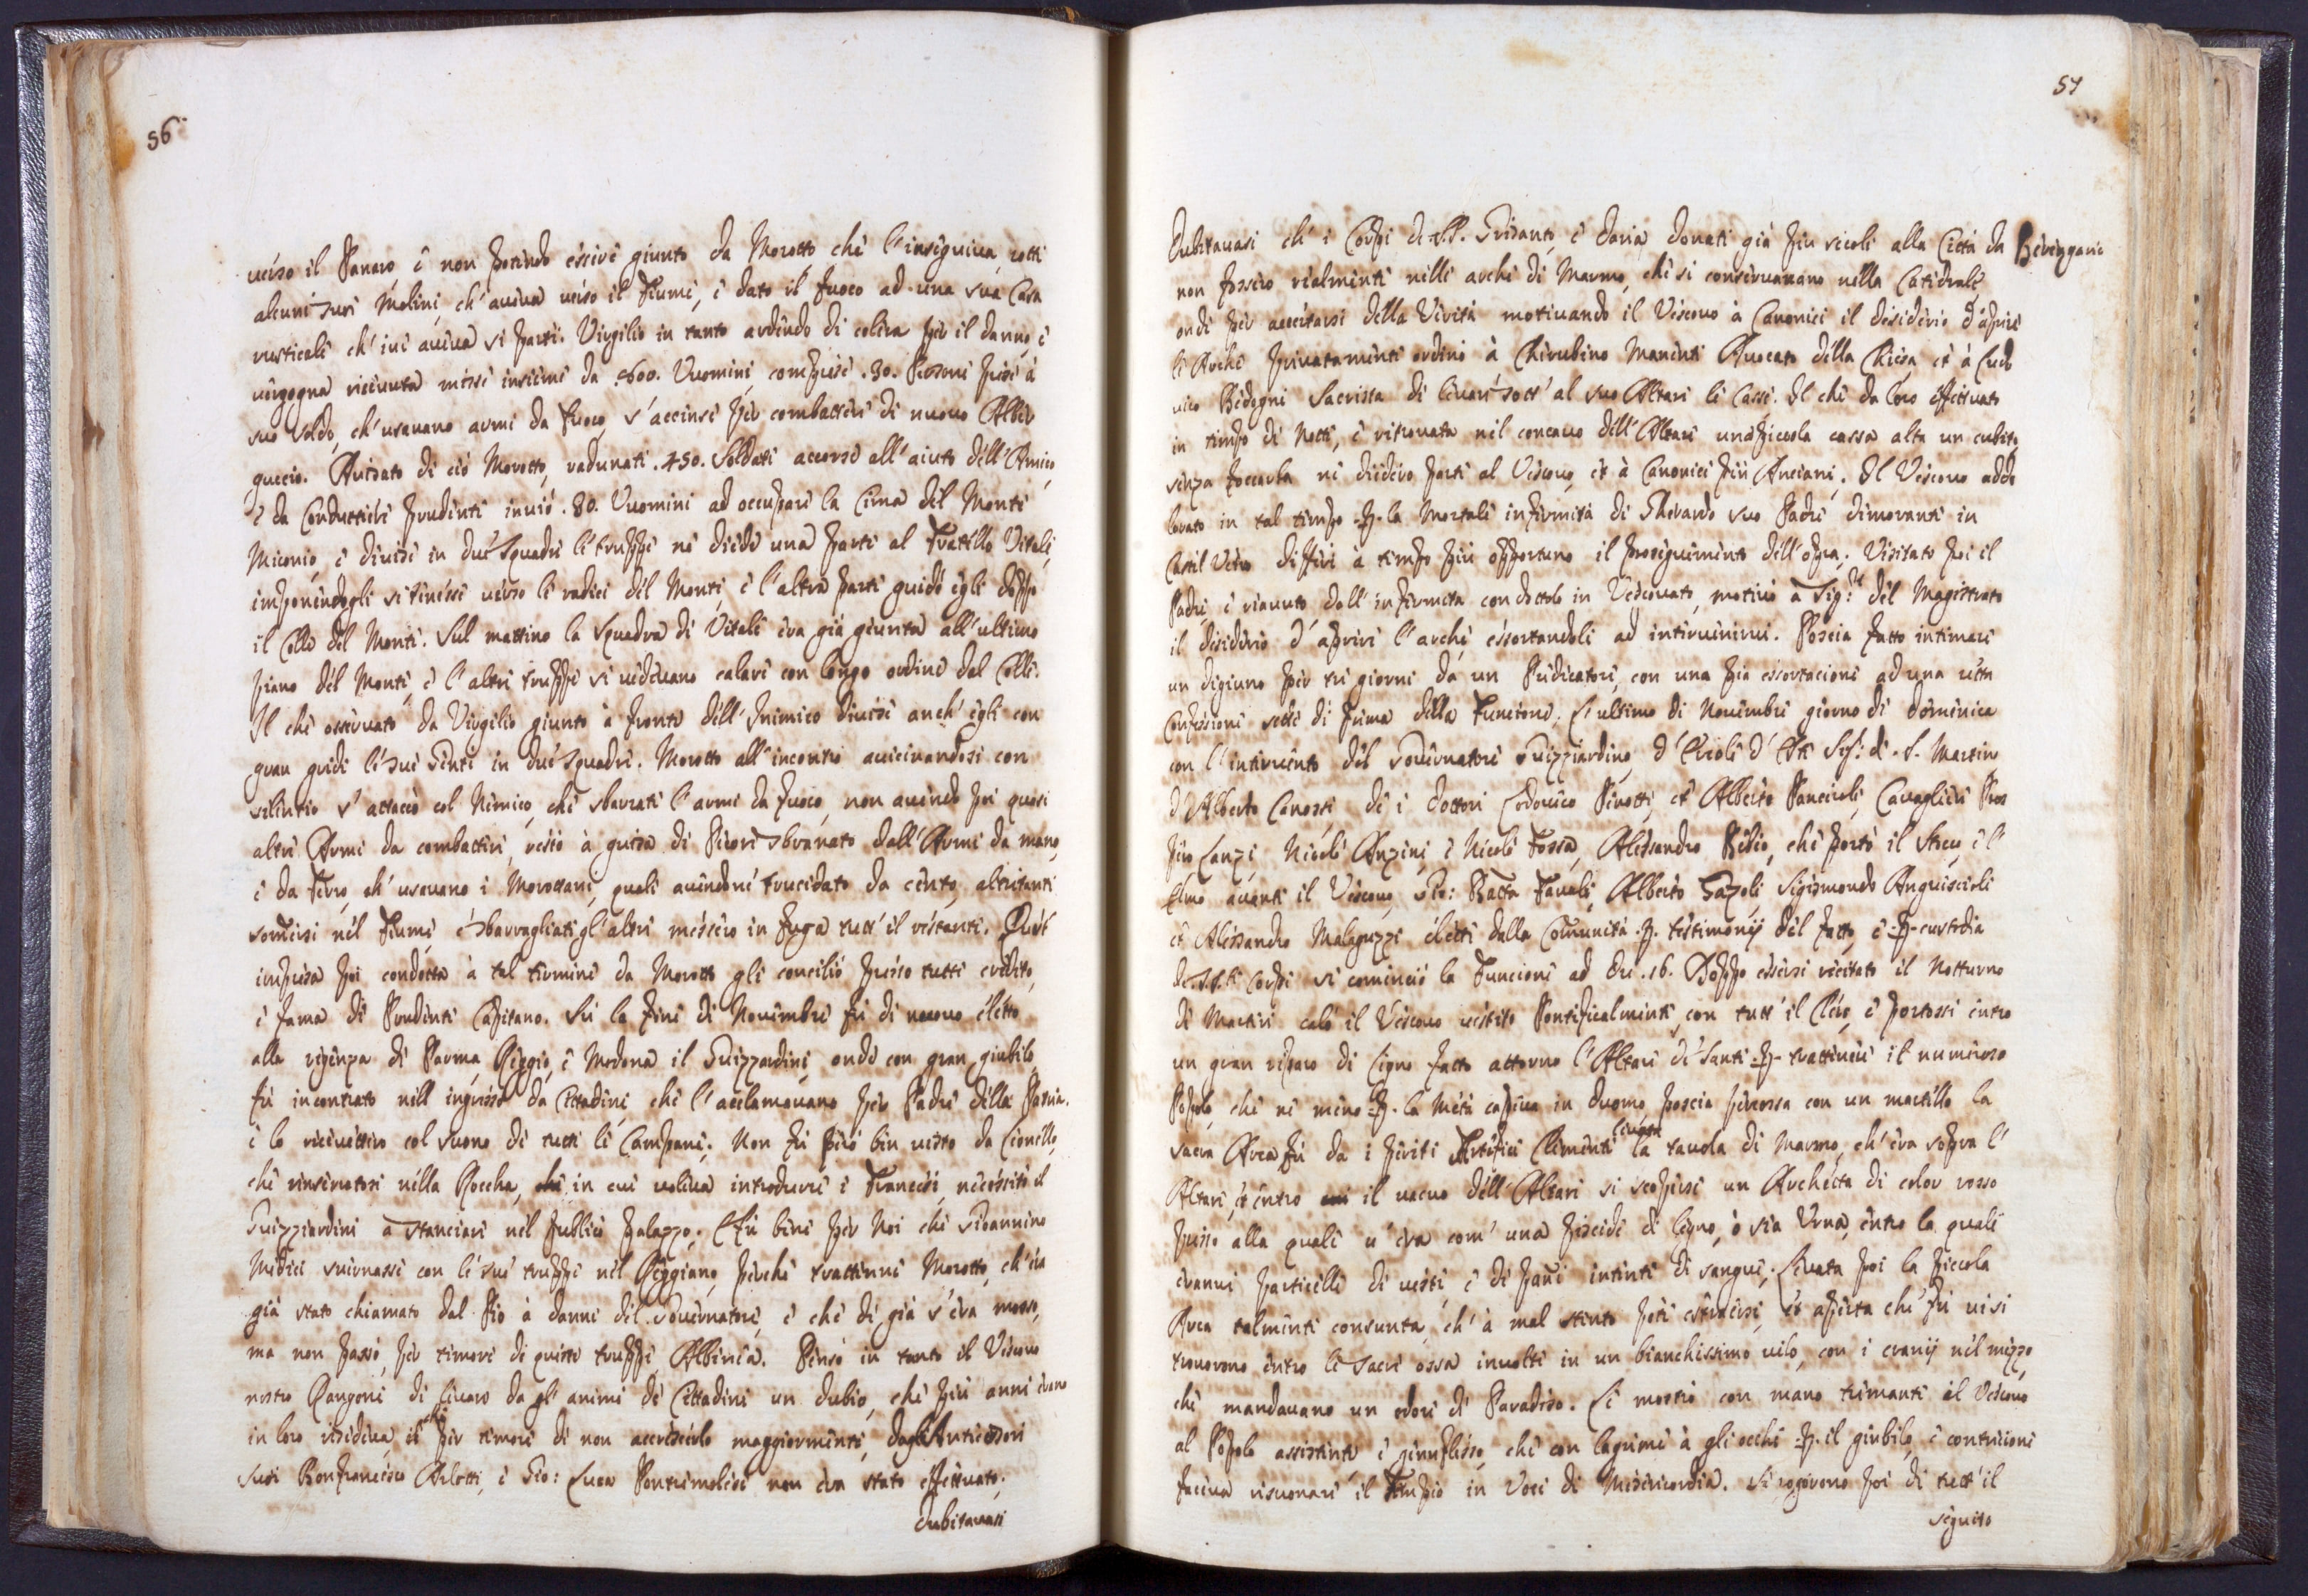 56
verso il Panaro e non potendo essere giunto da Morotto che l'inseguiva, rotti
alcuni suoi Molini, ch'aveva verso il Fiume, e dato il fuoco ad una sua Casa
rusticale ch'ivi aveva si partì. Virgilio in tanto ardendo di colera per il danno, e
vergogna ricevuta messi insieme da 600. Vuomini, compresi .30. Persone prese à
suo soldo, ch'usavano armi da fuoco, s'accinse per combattere di nuovo Alber
guccio. Avisato di ciò Morotto, radunati .450. Soldati accorse all'aiuto dell'Amico,
e da Conduttiere prudente inviò .80. Vuomini ad occupare la Cima del Monte
Miconio, e divise in due squadre le truppe ne diede una parte al Fratello Vitale,
imponendogli si tenesse verso le radici del Monte, e l'altra parte guidò egli doppo
il Colle del Monte. Sul mattino la squadra di Vitale era già giunta all'ultimo
piano del Monte, e l'altre truppe si vedevano calare con longo ordine dal Colle.
Il che osservato da Virgilio giunto à fronte dell'Inimico divise anch'egli con
gran gridi le sue Genti in due squadre. Morotto all'incontro avicinandosi con
silentio s'attaccò col Nemico, che sbarrati l'armi da fuoco, non avendo poi quasi
altre Armi da combattere, restò à guisa di Pecore sbranato dall'Armi da mano,
e da Ferro, ch'usavano i Morottani, quali avendone trucidato da cento, altritanti
somersi nel Fiume, e sbarragliati gl'altri messero in fuga tutt'il restante. Quest
impresa poi condotta à tal termine da Morotto gli conciliò presso tutti credito,
e fama di Prudente Capitano. Su la fine di Novembre fù di nuovo eletto
alla regenza di Parma, Reggio, e Modona il Guizzardini, onde con gran giubilo
fù incontrato nell ingresso da Cittadini, che l'acclamavano per Padre della Patria.
e lo ricevettero col suono di tutte le Campane. Non fù però ben visto da Cionello,
che rinserratosi nella Roccha, in cui voleva introdurre i Francesi, necessitò il
Guizziardini a stanciare nel publico palazzo. E fù bene per Noi che Gioannino
Medici svernasse con le sue truppe nel Reggiano, perche trattenne Morotto, ch'era
già stato chiamato dal Pio à danni del Governatore, e che di già s'era mosso,
ma non passò, per timore di queste truppe Albinea. Pensò in tanto il Vescovo
nostro Rangoni di levare da gl'animi de Cittadini un dubio, che più anni erano
in loro risideva, et che per timore di non accrescerlo maggiormente, dagl'Antecessori
suoi Bonfrancesco Arlotti, e Gio: Luca Pontremolesi non era stato effettuato.
Dubitavasi
57
Dubitavasi ch'i Corpi de SS. Grisanto, e Daria, donati già più secoli alla Città da Berengario
non fossero realmente nelle arche di Marmo, che si conservavano nella Catedrale,
onde per accertarsi della Verità motivando il Vescovo à Canonici il desiderio d'aprire
le Arche privatamente ordinò à Cherubino Manenti Avocato della Chiesa, et à Ludo
vico Bedogni Sacrista di levare sott'al suo Altare le Casse. Il che da loro effettuato
in tempo di Notte, e ritrovata nel concavo dell'Altare una picciola cassa alta un cubito,
senza toccarla ne diedero parte al Vescovo, et à Canonici più Anciani. Il Vescovo addo
lorato in tal tempo p. la Mortale infirmità di Gherardo suo Padre dimorante in
Castel Vetro differì à tempo più opportuno il proseguimento dell'opra. Visitato poi il
Padre, e riavuto dall'infirmità condottolo in Vescovato, motivò à Sig.ri del Magistrato
il desiderio d'aprire l'arche, essortandoli ad intervenirvi. Poscia fatto intimare
un digiuno per tre giorni da un Predicatore, con una pia essortacione ad una retta
Confessione sette dì prima della Funcione. L'ultimo di Novembre giorno di Dominica
con l'intervento del Governatore Guizziardino, d'Ercole d'Este Sig.r di S. Martino
d'Alberto Canossi, de i Dottori Lodovico Pirotti, et Alberto Pancirolo, Cavaglieri Pros
pero Lanzi, Nicolò Anzini, e Nicolò Fossa, Alessandro Besio, che portò il Stocco, e l'
Elmo avanti il Vescovo, Gio: Batta Favali, Alberto Zapoli, Sigismondo Anguiscioli
et Alessandro Malaguzzi eletti dalla Comunità p. testimonij del fatto, e p. custodia
de SS.ti Corpi si cominciò la Funcione ad Ore .16. Doppo essersi recitato il Notturno
di Martiri calò il Vescovo vestito Pontificalmente, con tutt'il Clero, e portossi entro
un gran riparo di Legno fatto attorno l'Altare de Santi p. trattenere il numeroso
Popolo, che ne meno p. la Metà capiva in duomo, poscia percossa con un martello la
sacra Arca fù da i periti Artefici Clementi levata la tavola di Marmo, ch'era sopra l'
Altare, et entro il vacuo dell'Altare si scoperse un Archetta di color rosso
presso alla quale v'era com'una pisside di legno, ò sia Urna, entro la quale
eranvi particelle di vesti, e di pani intinti di sangue. Levata poi la piccola
Arca talmente consunta, ch'à mal stento potè estraersi, et aperta che fù visi
trovorono entro le Sacre ossa involte in un bianchissimo velo, con i cranij nel mezzo,
che mandavano un odore di Paradiso. Le mostrò con mano tremante il Vescovo
al Popolo assistente, e genuflesso, che con lagrime à gli occhi p. il giubilo, e contricione
faceva risuonare il Tempio in Voci di Misericordia. Si rogorono poi di tutt'il
seguito